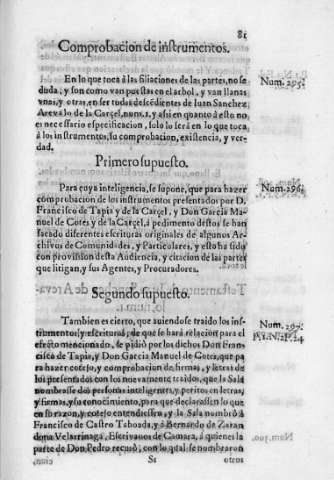 81
Comprobacion de instrumentos.
En lo que toca à las filiaciones de las partes, no se
duda, y son como van puestas en el arbol, y van llanas
vnas, y otras, en ser todos descédientes de Iuan Sanchez
Arevalo de la Carçel, num. 1. y asi en quanto à esto no
es necessario especificacion, solo lo serà en lo que toca,
à los instrumentos, su comprobacion, existencia, y ver-
dad.
Num. 295.
Primero supuesto.
Para cuya inteligencia, se supone, que para hazer
comprobacion de los instrumentos presentados por D.
Francisco de Tapia y de la Carçel, y Don Garcia Ma-
nuel de Cotes y de la Carçel, à pedimento destos se han
sacado diferentes escrituras originales de algunos Ar-
chivos de Comunidades, y Particulares, y esto ha sido
con provision desta Audiencia, y citacion de las partes
que litigan, y sus Agentes, y Procuradores.
Num. 296.
Segundo supuesto.
Tambien es cierto, que aviendose traido los ins-
trumentos, y escrituras, de que se harà relacion para el
efecto mencionado, se pidiò por los dichos Don Fran-
cisco de Tapia, y Don Garcia Manuel de Cotes, que pa
ra hazer cotejo, y comprobacion de firmas, y letras de
los presentados con los nuevamente traidos, que la Sala
nombrasse dos personas inteligentes, y peritos en letras,
y firmas, y su conocimiento, para que declarassen lo que
en su razon, y cotejo entendiessen, y la Sala nombrò à
Francisco de Castro Taboada, y à Bernardo de Zaran
dona Velarrinaga, Escrivanos de Camara, à quienes la
parte de Don Pedro recusò, con lo qual se nombraron
Num. 297.
Ss
otros